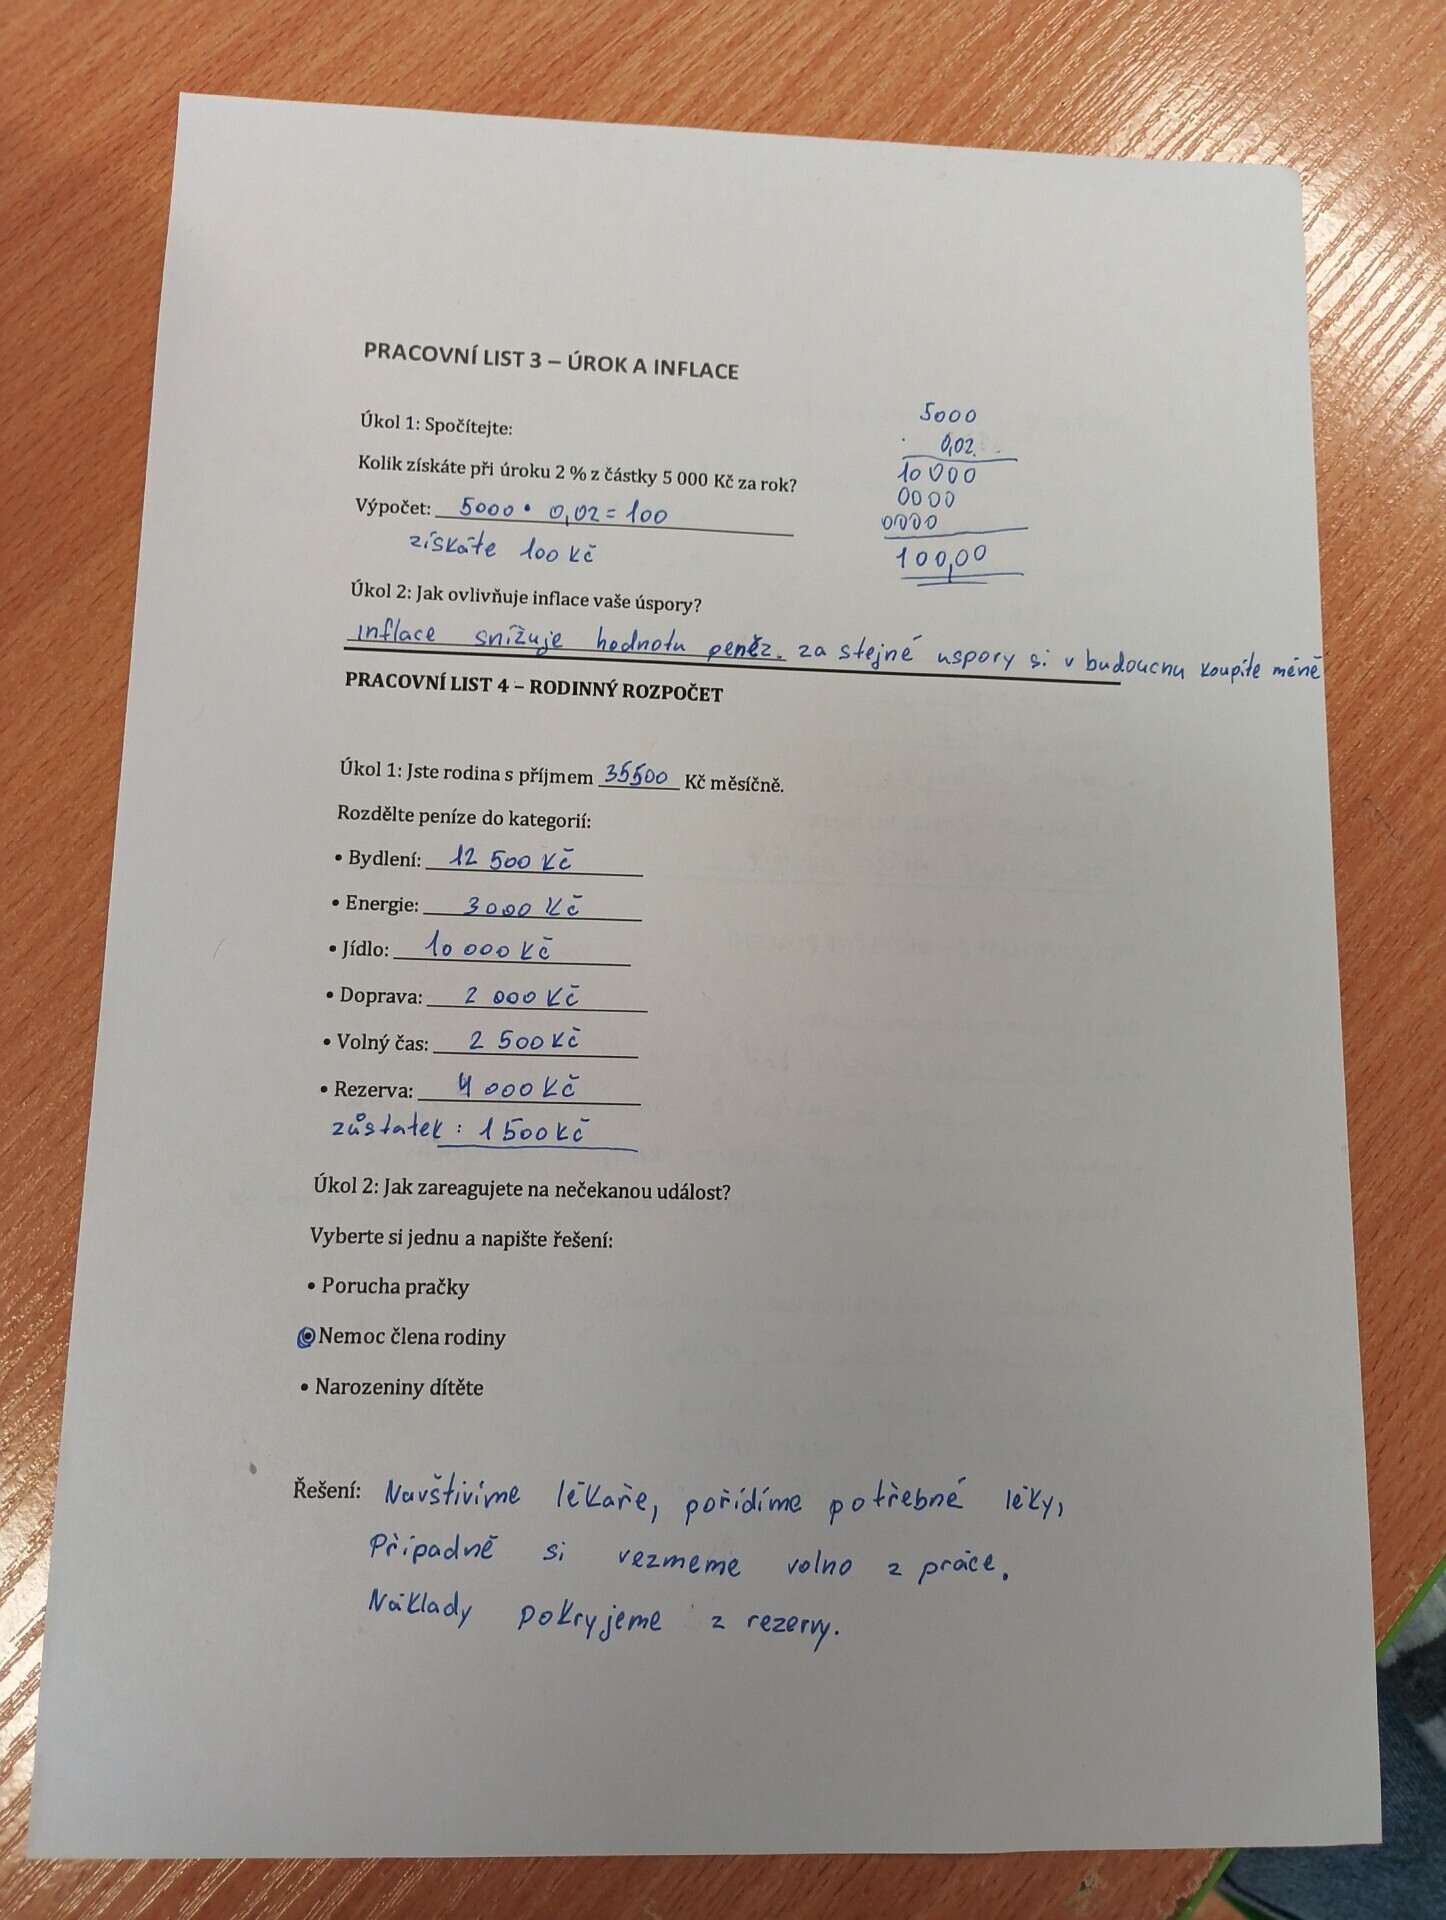 PRACOVNÍ LIST 3 – ÚROK A INFLACE
Úkol 1: Spočítejte:
Kolik získáte při úroku 2 % z částky 5 000 Kč za rok?
Výpočet: 5000 · 0,02 = 100
získáte 100 Kč
5000
· 0,02
10000
0000
0000
100,00
Úkol 2: Jak ovlivňuje inflace vaše úspory?
inflace snižuje hodnotu peněz. za stejné uspory si v budoucnu koupíte méně
PRACOVNÍ LIST 4 – RODINNÝ ROZPOČET
Úkol 1: Jste rodina s příjmem 35500 Kč měsíčně.
Rozdělte peníze do kategorií:
• Bydlení: 12 500 Kč
• Energie: 3000 Kč
• Jídlo: 10 000 Kč
• Doprava: 2 000 Kč
• Volný čas: 2 500 Kč
• Rezerva: 4 000 Kč
zůstatek : 1 500 Kč
Úkol 2: Jak zareagujete na nečekanou událost?
Vyberte si jednu a napište řešení:
• Porucha pračky
• Nemoc člena rodiny
• Narozeniny dítěte
Řešení: Navštívíme lékaře, pořídíme potřebné léky,
Případně si vezmeme volno z práce.
Náklady pokryjeme z rezervy.